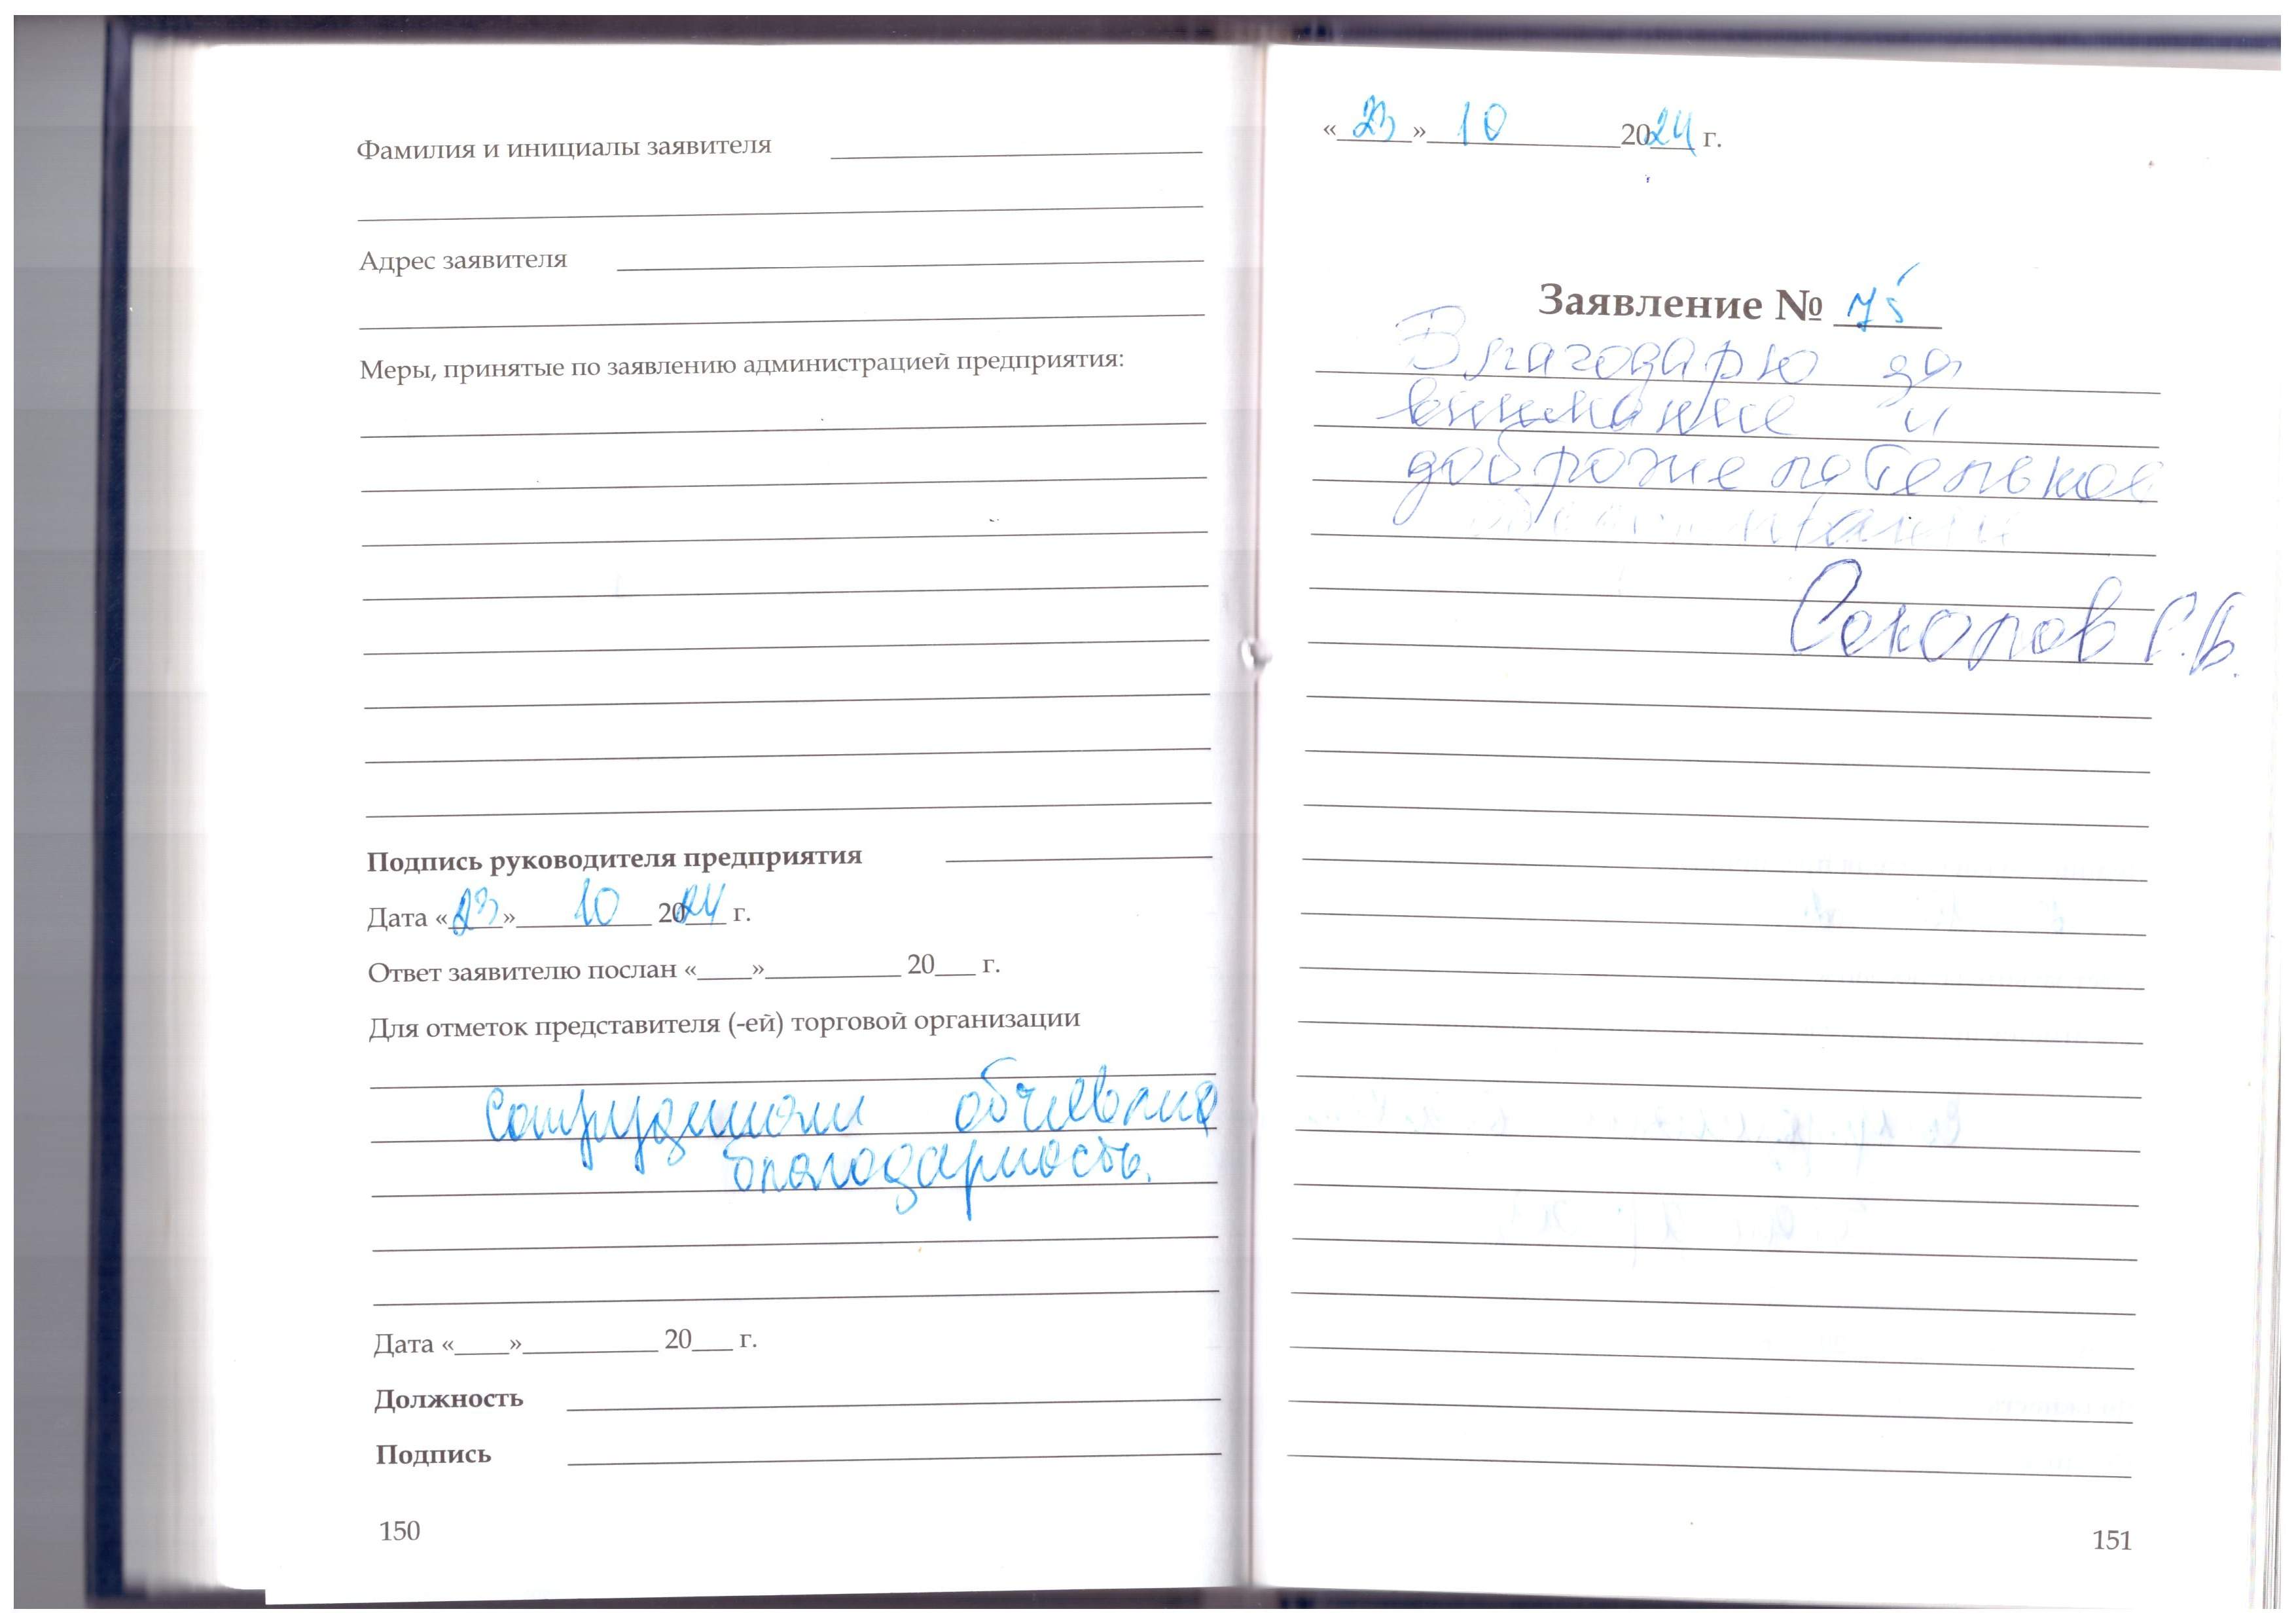 Фамилия и инициалы заявителя
Адрес заявителя
Меры, принятые по заявлению администрацией предприятия:
Подпись руководителя предприятия
Дата «23» 10 2024 г.
Ответ заявителю послан «____»__________ 20___ г.
Для отметок представителя (-ей) торговой организации
Сотрудникам объявлена
благодарность.
Дата «____»__________ 20___ г.
Должность
Подпись
150
«23» 10 2024 г.
Заявление № 75
Благодарю за
внимание и
доброжелательное
Соколов Г.В.
151